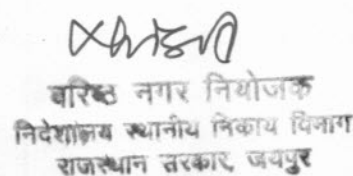 वरिष्ठ नगर नियोजक
निदेशालय स्थानीय निकाय विभाग
राजस्थान सरकार, जयपुर